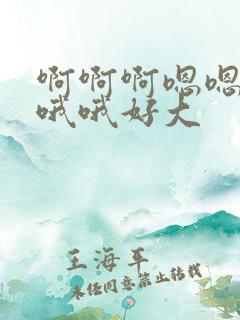 啊啊啊嗯嗯
哦哦好大
王海平
未经同意禁止转载